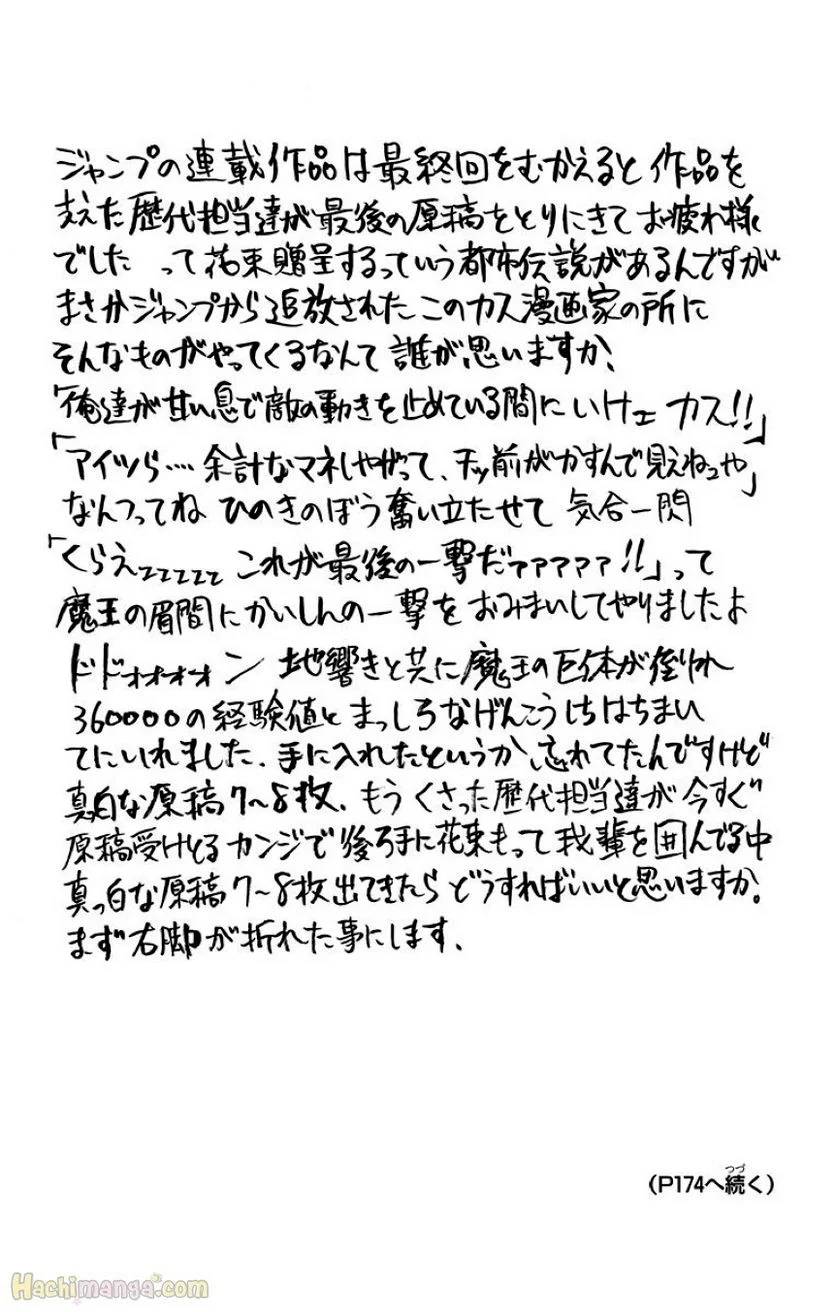 ジャンプの連載作品は最終回をむかえると作品を
支えた歴代担当達が最後の原稿をとりにきてお疲れ様
でした って花束贈呈するっていう都市伝説があるんですが
まさかジャンプから追放されたこのカス漫画家の所に
そんなものがやってくるなんて誰が思いますか、
「俺達が甘い息で敵の動きを止めている間にいけェ カス!!」
「アイツら…. 余計なマネしやがって、前がかすんで見えねェや」
なんつってね ひのきのぼう奮い立たせて 気合一閃
「くらえェェェェェ これが最後の一撃だァァァァァ!!」って
魔王の眉間にかいしんの一撃をおみまいしてやりましたよ
ドドォォォォォン 地響きと共に魔王の巨体が倒れ
360000の経験値とまっしろなげんこうしちはちまい
てにいれました、手に入れたというか、忘れてたんですけど
真白な原稿7〜8枚、もうくさった歴代担当達が今すぐ
原稿受けとるカンジで後ろ手に花束もって我輩を囲んでる中
真っ白な原稿7〜8枚出てきたらどうすればいいと思いますか、
まず右脚が折れた事にします、
つづ
(P174へ続く)
Hachimanga.com